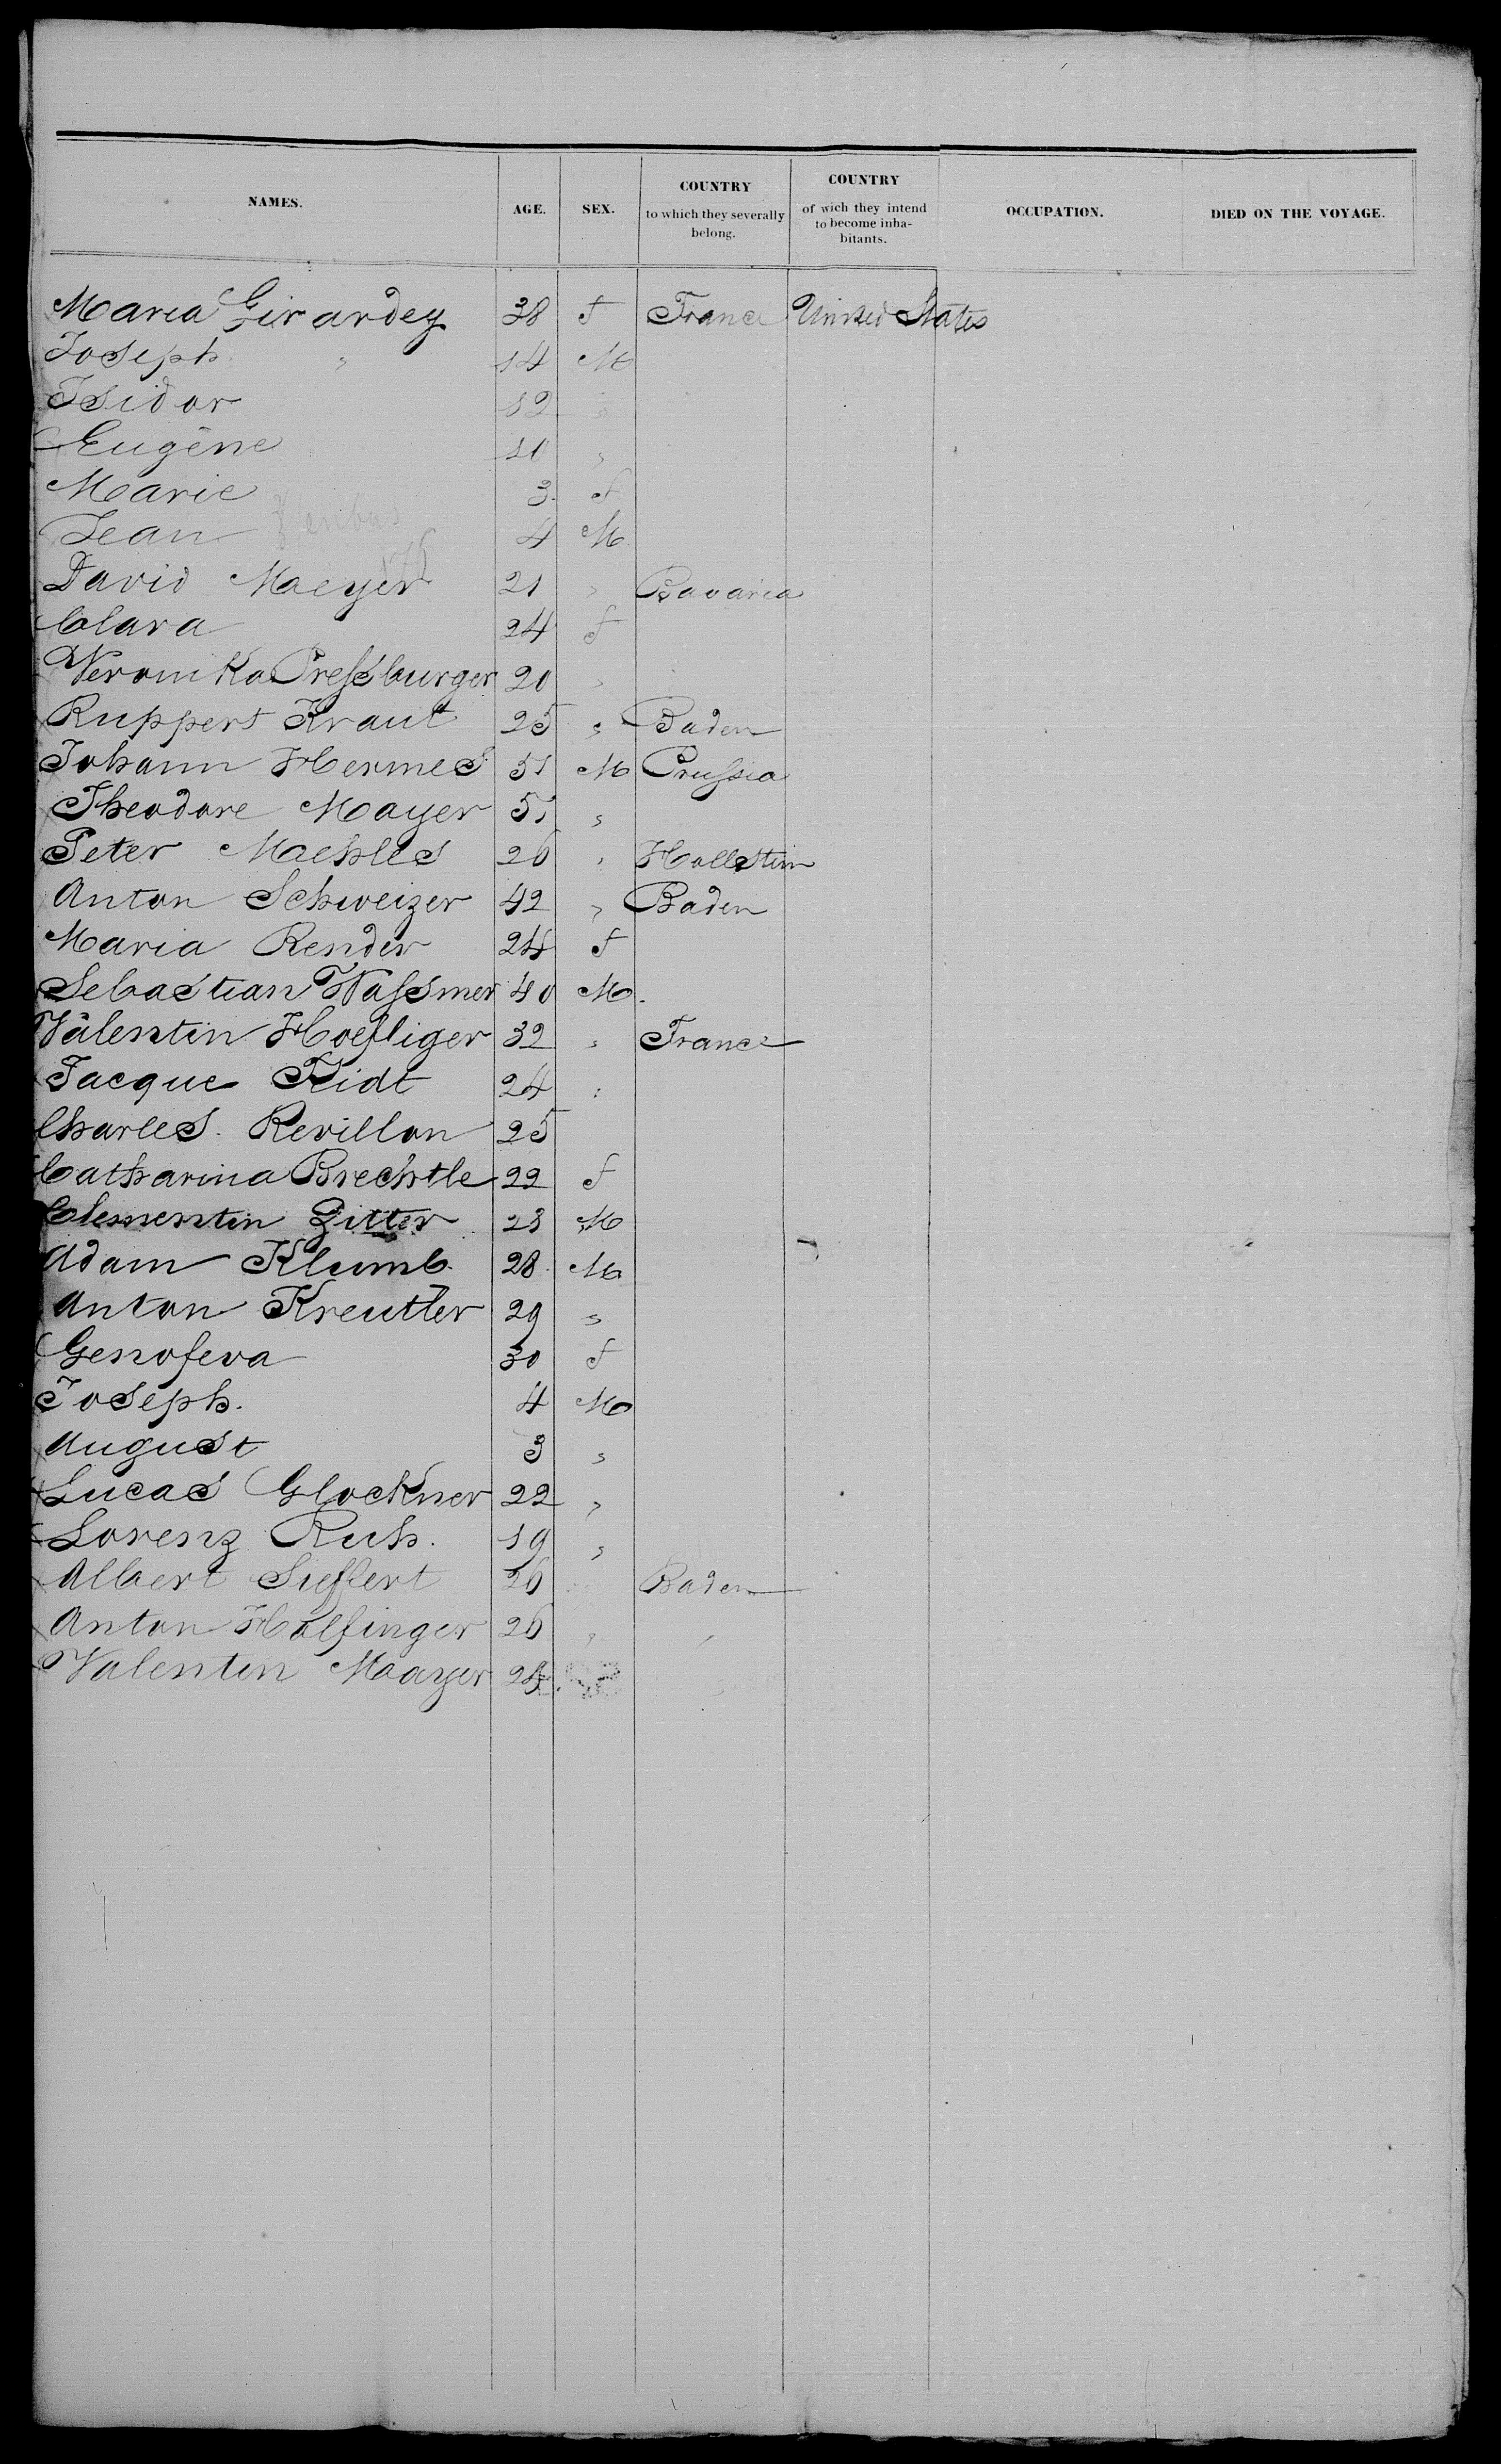 NAMES. AGE. SEX. COUNTRY to which they severally belong. COUNTRY of wich they intend to become inhabitants. OCCUPATION. DIED ON THE VOYAGE.
Maria Girardey 38 f France United States
Joseph " 14 M
Isidor 12 "
Eugène 10 "
Marie 3 f
Jean 4 M
David Maeyer 21 " Bavaria
Clara 24 f
Veronika Pressburger 20 "
Ruppert Kraut 25 " Baden
Johann Hermes 51 M Prussia
Theodore Mayer 51 "
Peter Maehles 26 " Hollstein
Anton Schweizer 42 " Baden
Maria Render 24 f
Sebastian Wassmer 40 M.
Valentin Hoefliger 32 " France
Jacque Fidt 24 "
Charles Revillon 25
Catharina Brechtle 22 f
Clementin Zitter 23 M
Adam Klumb 28 M
Anton Kreutler 29 "
Genofeva 30 f
Joseph. 4 M
August 3 "
Lucas Glockner 22 "
Lorenz Ruh. 19 "
Albert Sieffert 26 Baden
Anton Holfinger 26 " "
Valentin Maayer 24 "